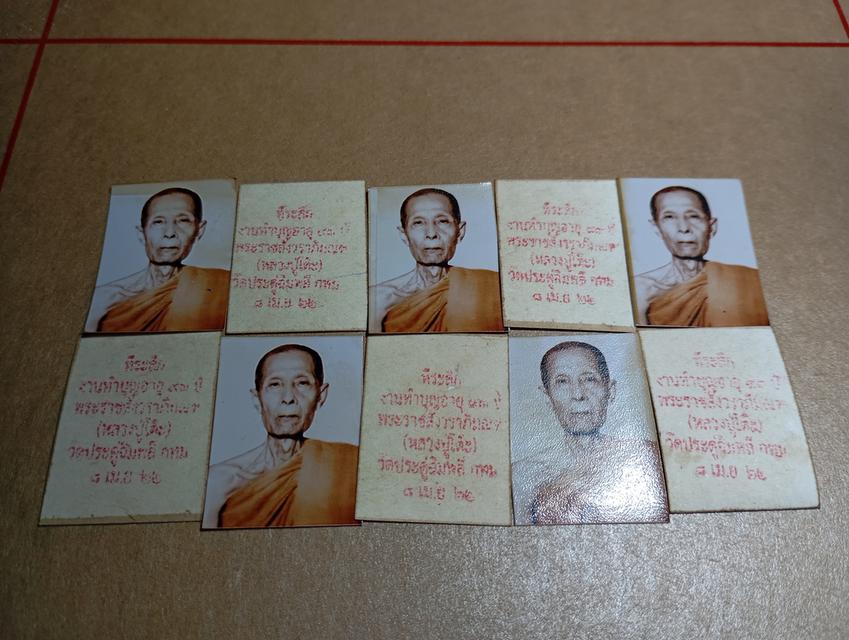 ที่ระลึก
งานทำบุญอายุ ๙๓ ปี
พระราชสังวราภิมณฑ์
(หลวงปู่โต๊ะ)
วัดประดู่ฉิมพลี กทม
๘ เม.ย ๒๒
ที่ระลึก
งานทำบุญอายุ ๙๓ ปี
พระราชสังวราภิมณฑ์
(หลวงปู่โต๊ะ)
วัดประดู่ฉิมพลี กทม
๘ เม.ย ๒๒
ที่ระลึก
งานทำบุญอายุ ๙๓ ปี
พระราชสังวราภิมณฑ์
(หลวงปู่โต๊ะ)
วัดประดู่ฉิมพลี กทม
๘ เม.ย ๒๒
ที่ระลึก
งานทำบุญอายุ ๙๓ ปี
พระราชสังวราภิมณฑ์
(หลวงปู่โต๊ะ)
วัดประดู่ฉิมพลี กทม
๘ เม.ย ๒๒
ที่ระลึก
งานทำบุญอายุ ๙๓ ปี
พระราชสังวราภิมณฑ์
(หลวงปู่โต๊ะ)
วัดประดู่ฉิมพลี กทม
๘ เม.ย ๒๒